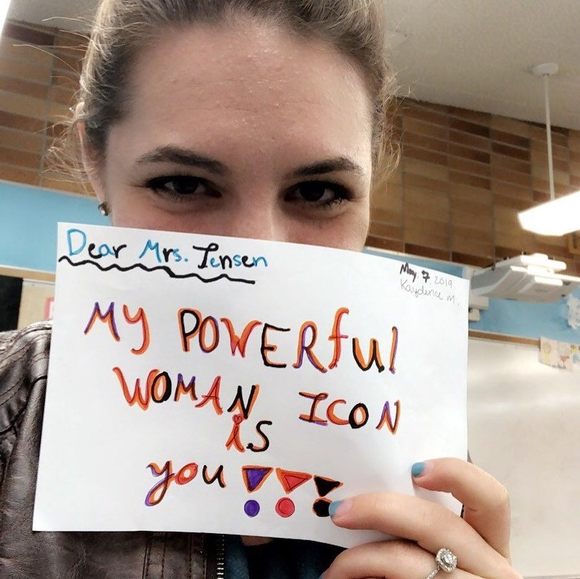 Dear Mrs. Jensen
May 7 2019
Kaydence M.
MY POWERfUl
WOMAN ICON
iS
you!!!